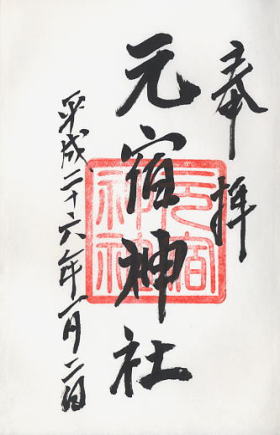 奉拝
元宿神社
元宿神社
平成二十六年一月二日